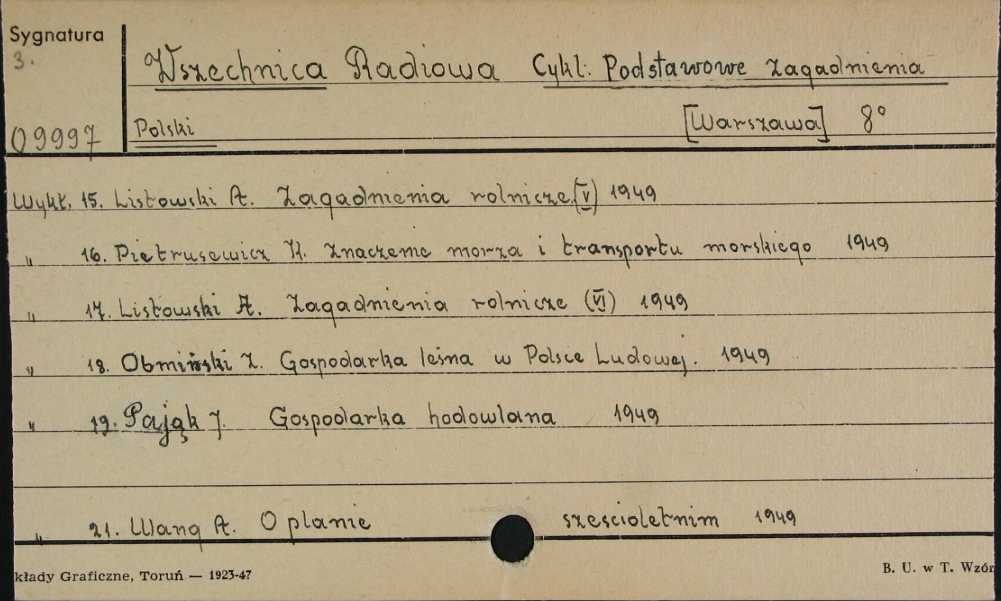 Sygnatura
3.
Wszechnica Radiowa Cykl: Podstawowe Zagadnienia
09997 Polski [Warszawa] 8°
Wykł. 15. Listowski A. Zagadnienia rolnicze.(V) 1949
" 16. Pietrusewicz K. Znaczenie morza i transportu morskiego 1949
" 17. Listowski A. Zagadnienia rolnicze (VI) 1949
" 18. Obmiński Z. Gospodarka leśna w Polsce Ludowej. 1949
" 19. Pająk J. Gospodarka hodowlana 1949
" 21. Wang A. O planie sześcioletnim 1949
kłady Graficzne, Toruń — 1923-47
B. U. w T. Wzór